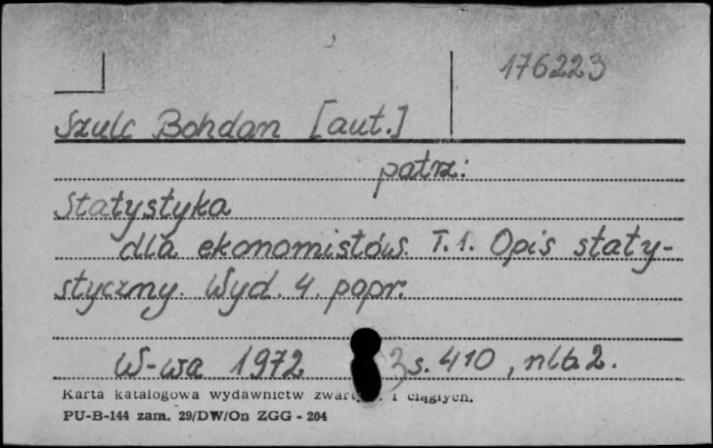 176223
Szulc Bohdan [aut.]
patrz:
Statystyka
dla ekonomistów. T. 1. Opis staty-
styczny. Wyd. 4. popr.
W-wa 1972 s. 410, nlb 2.
Karta katalogowa wydawnictw i ciągłych.
PU-B-144 zam. 29/DW/On ZGG - 204